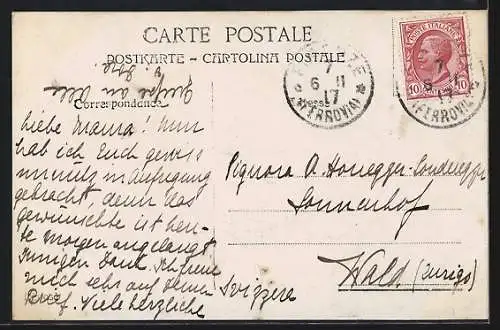 CARTE POSTALE
POSTKARTE – CARTOLINA POSTALE
POSTE ITALIANE
10 10
7
6 II
17
(FERROVIA)
7
17
(FERROVIA)
Correspondance
Grüsse an Alle
liebe Mama! Nun
hab ich Euch gewiss
unnütz in Aufregung
gebracht, denn das
gewünschte ist heu-
te morgen angelangt
Innigen Dank. Ich freue
mich sehr auf Deinen
Brief. Viele herzliche
Signora A. Honegger-Sonderegger
Sonnenhof
Wald. (Zurigo)
Svizzera